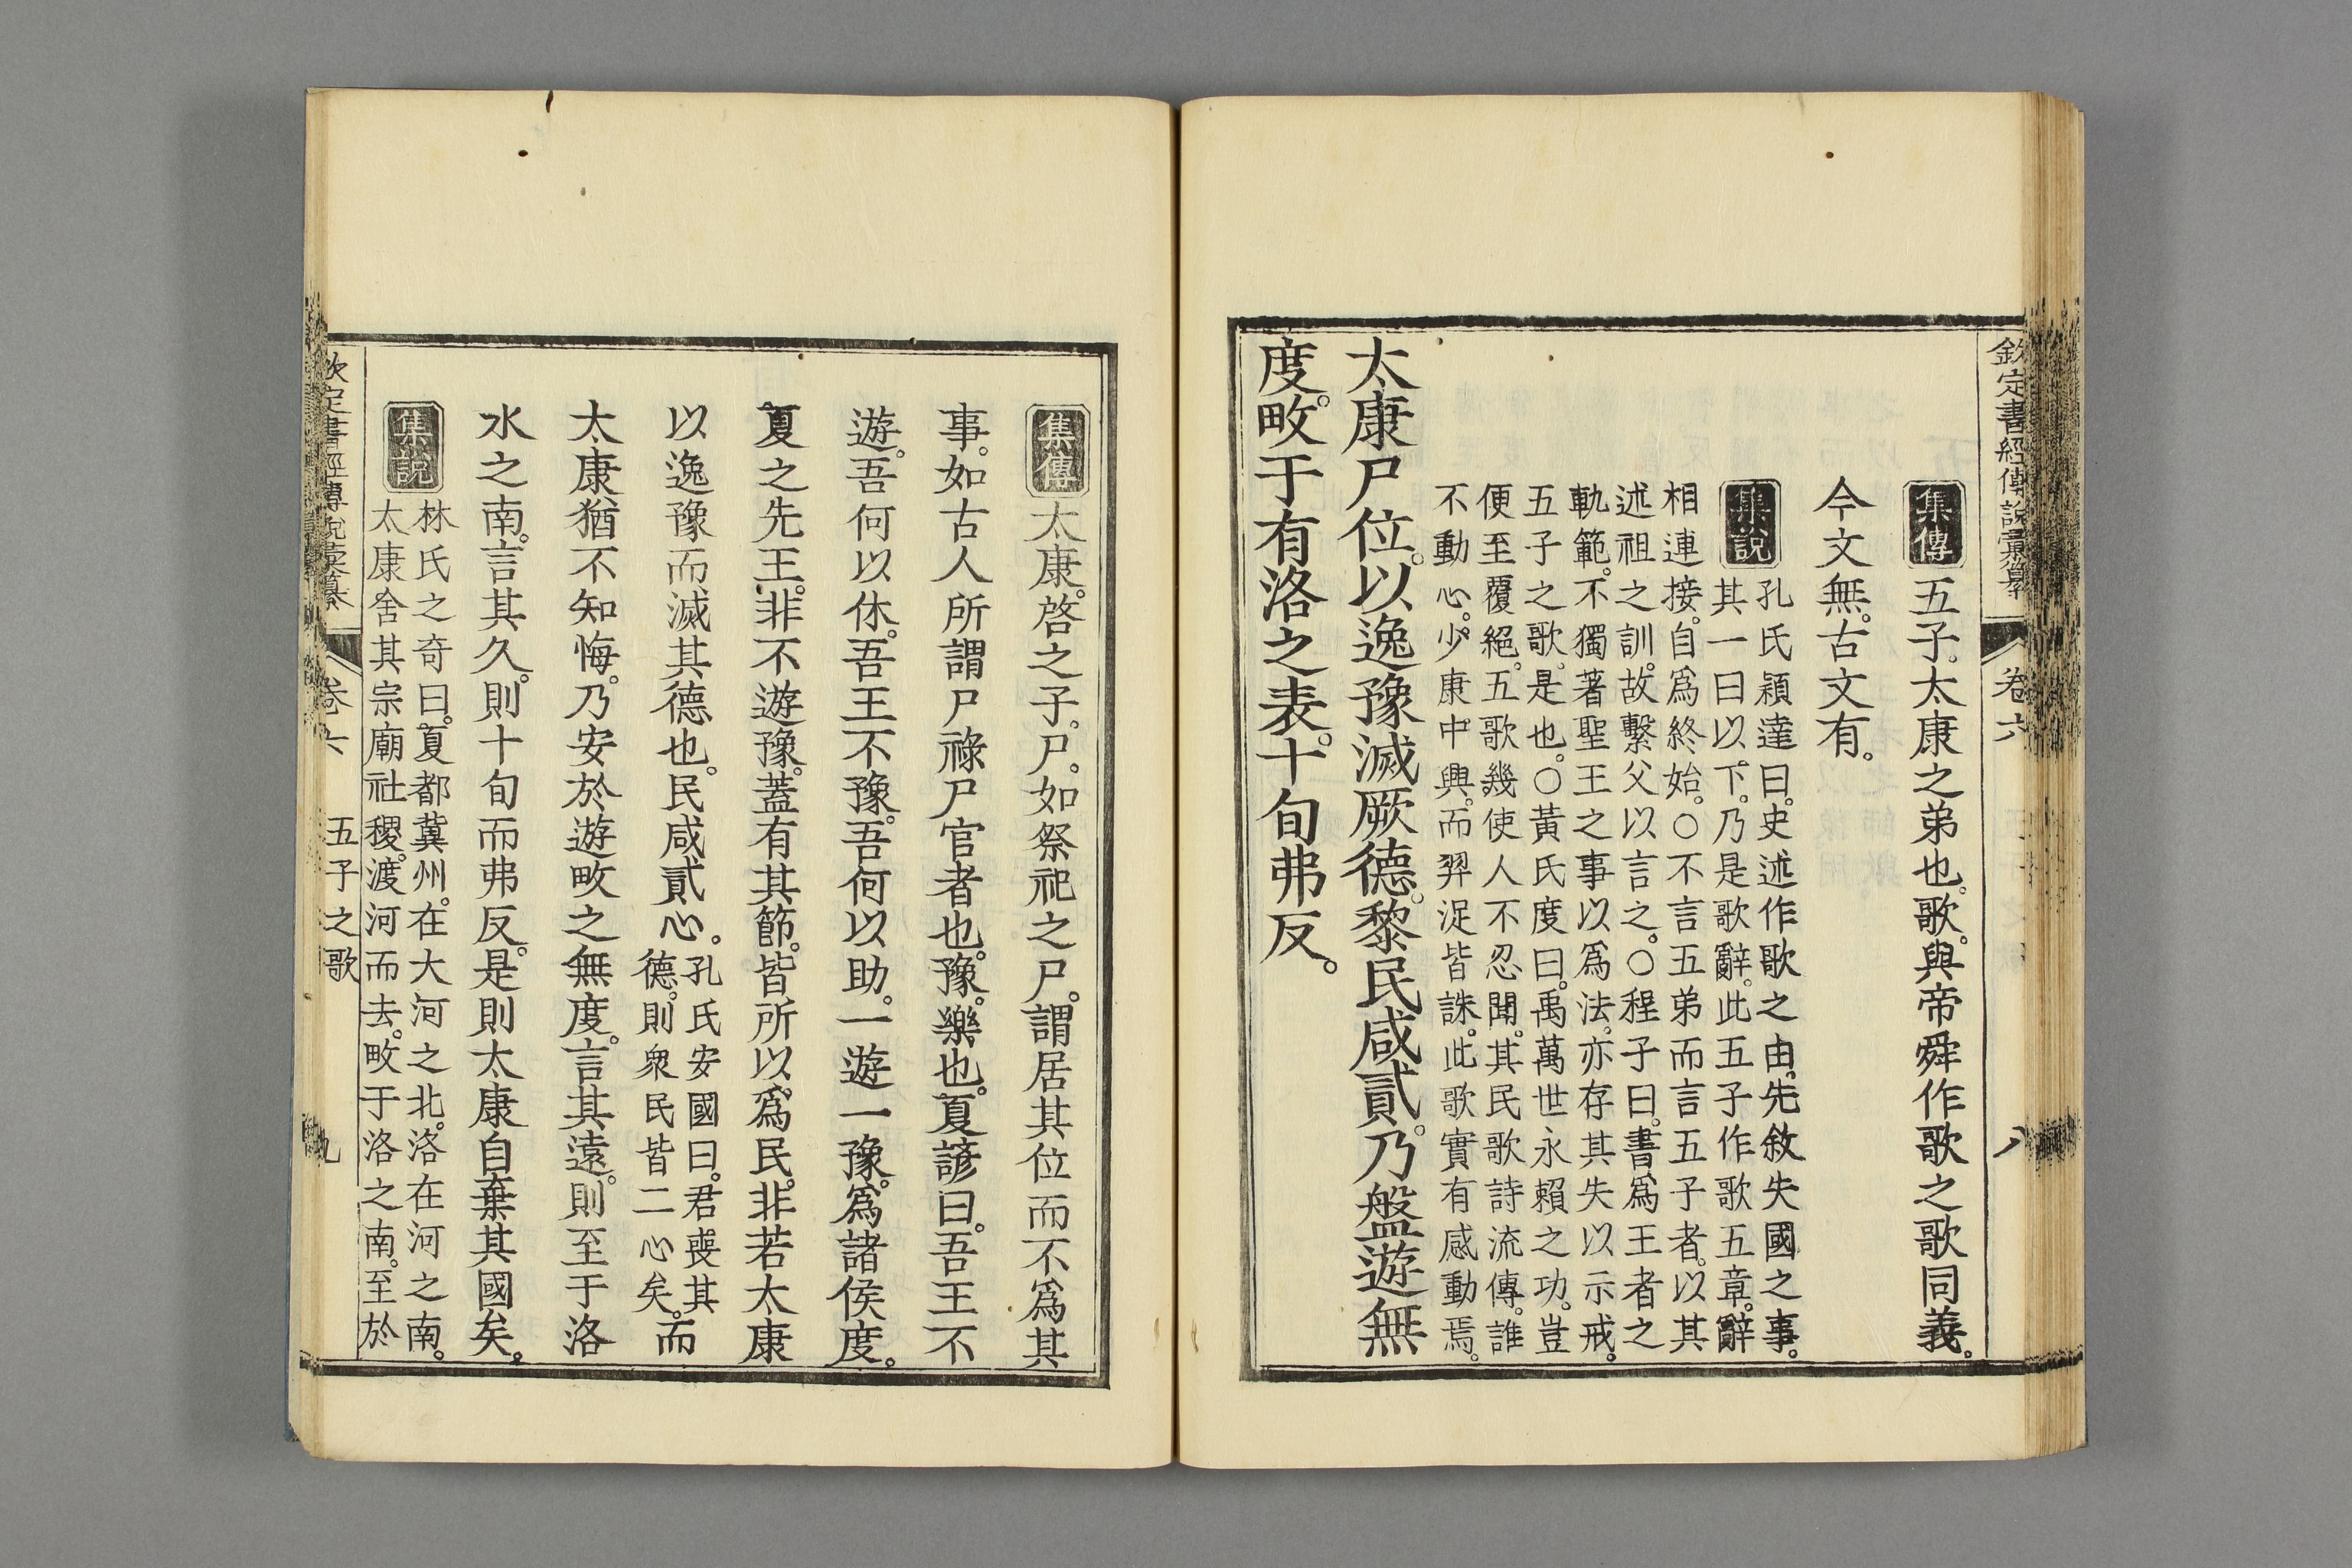 欽定書經傳說彙纂 卷六 八
集傳 五子。太康之弟也。歌。與帝舜作歌之歌同義。
今文無。古文有。
集說 孔氏穎達曰。史述作歌之由。先敘失國之事。
其一曰以下。乃是歌辭。此五子作歌五章。辭
相連接。自爲終始。○不言五弟而言五子者。以其
述祖之訓。故繫父以言之。○程子曰。書爲王者之
軌範。不獨著聖王之事以爲法。亦存其失以示戒。
五子之歌。是也。○黃氏度曰。禹萬世永賴之功。豈
便至覆絕。五歌幾使人不忍聞。其民歌詩流傳。誰
不動心。少康中興。而羿浞皆誅。此歌實有感動焉。
太康尸位。以逸豫滅厥德。黎民咸貳。乃盤遊無
度。畋于有洛之表。十旬弗反。
集傳 太康。啓之子。尸。如祭祀之尸。謂居其位而不爲其
事。如古人所謂尸祿尸官者也。豫。樂也。夏諺曰。吾王不
遊。吾何以休。吾王不豫。吾何以助。一遊一豫。爲諸侯度。
夏之先王。非不遊豫。蓋有其節。皆所以爲民。非若太康
以逸豫而滅其德也。民咸貳心。孔氏安國曰。君喪其德。則衆民皆二心矣。而
太康猶不知悔。乃安於遊畋之無度。言其遠。則至于洛
水之南。言其久。則十旬而弗反。是則太康自棄其國矣。
集說 林氏之奇曰。夏都冀州。在大河之北。洛在河之南。
太康舍其宗廟社稷。渡河而去。畋于洛之南。至於
欽定書經傳說彙纂 卷六 五子之歌 九